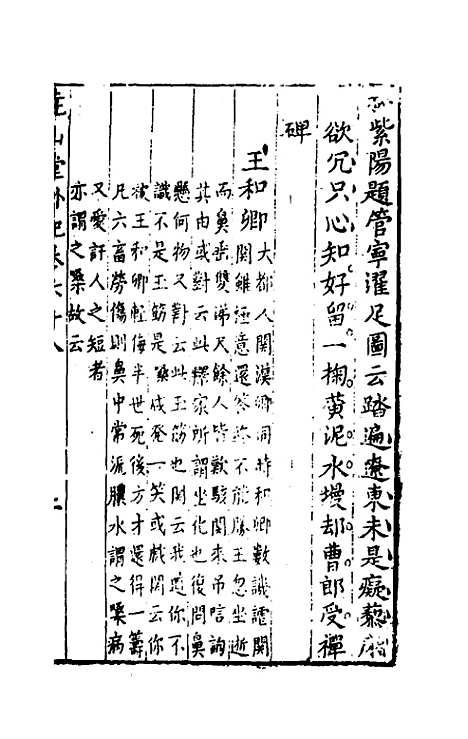 紫陽題管寧濯足圖云踏遍遼東未是癡藜牀
欲冗只心知好留一掬黃泥水墁却曹郎受禪
碑
王和卿大都人關漢卿同時和卿數譏謔關
關雖極意還答終不能勝王忽坐逝
而鼻垂雙涕尺餘人皆歎駭關來弔唁詢
其由或對云此釋家所謂坐化也復問鼻
懸何物又對云此玉筯也關云我道你不
識不是玉筯是嗓咸發一笑或戲關云你
被王和卿輕侮半世死後方才還得一籌
凡六畜勞傷則鼻中常流膿水謂之嗓病
又愛訐人之短者
亦謂之嗓故云
堯山堂外紀卷六十八